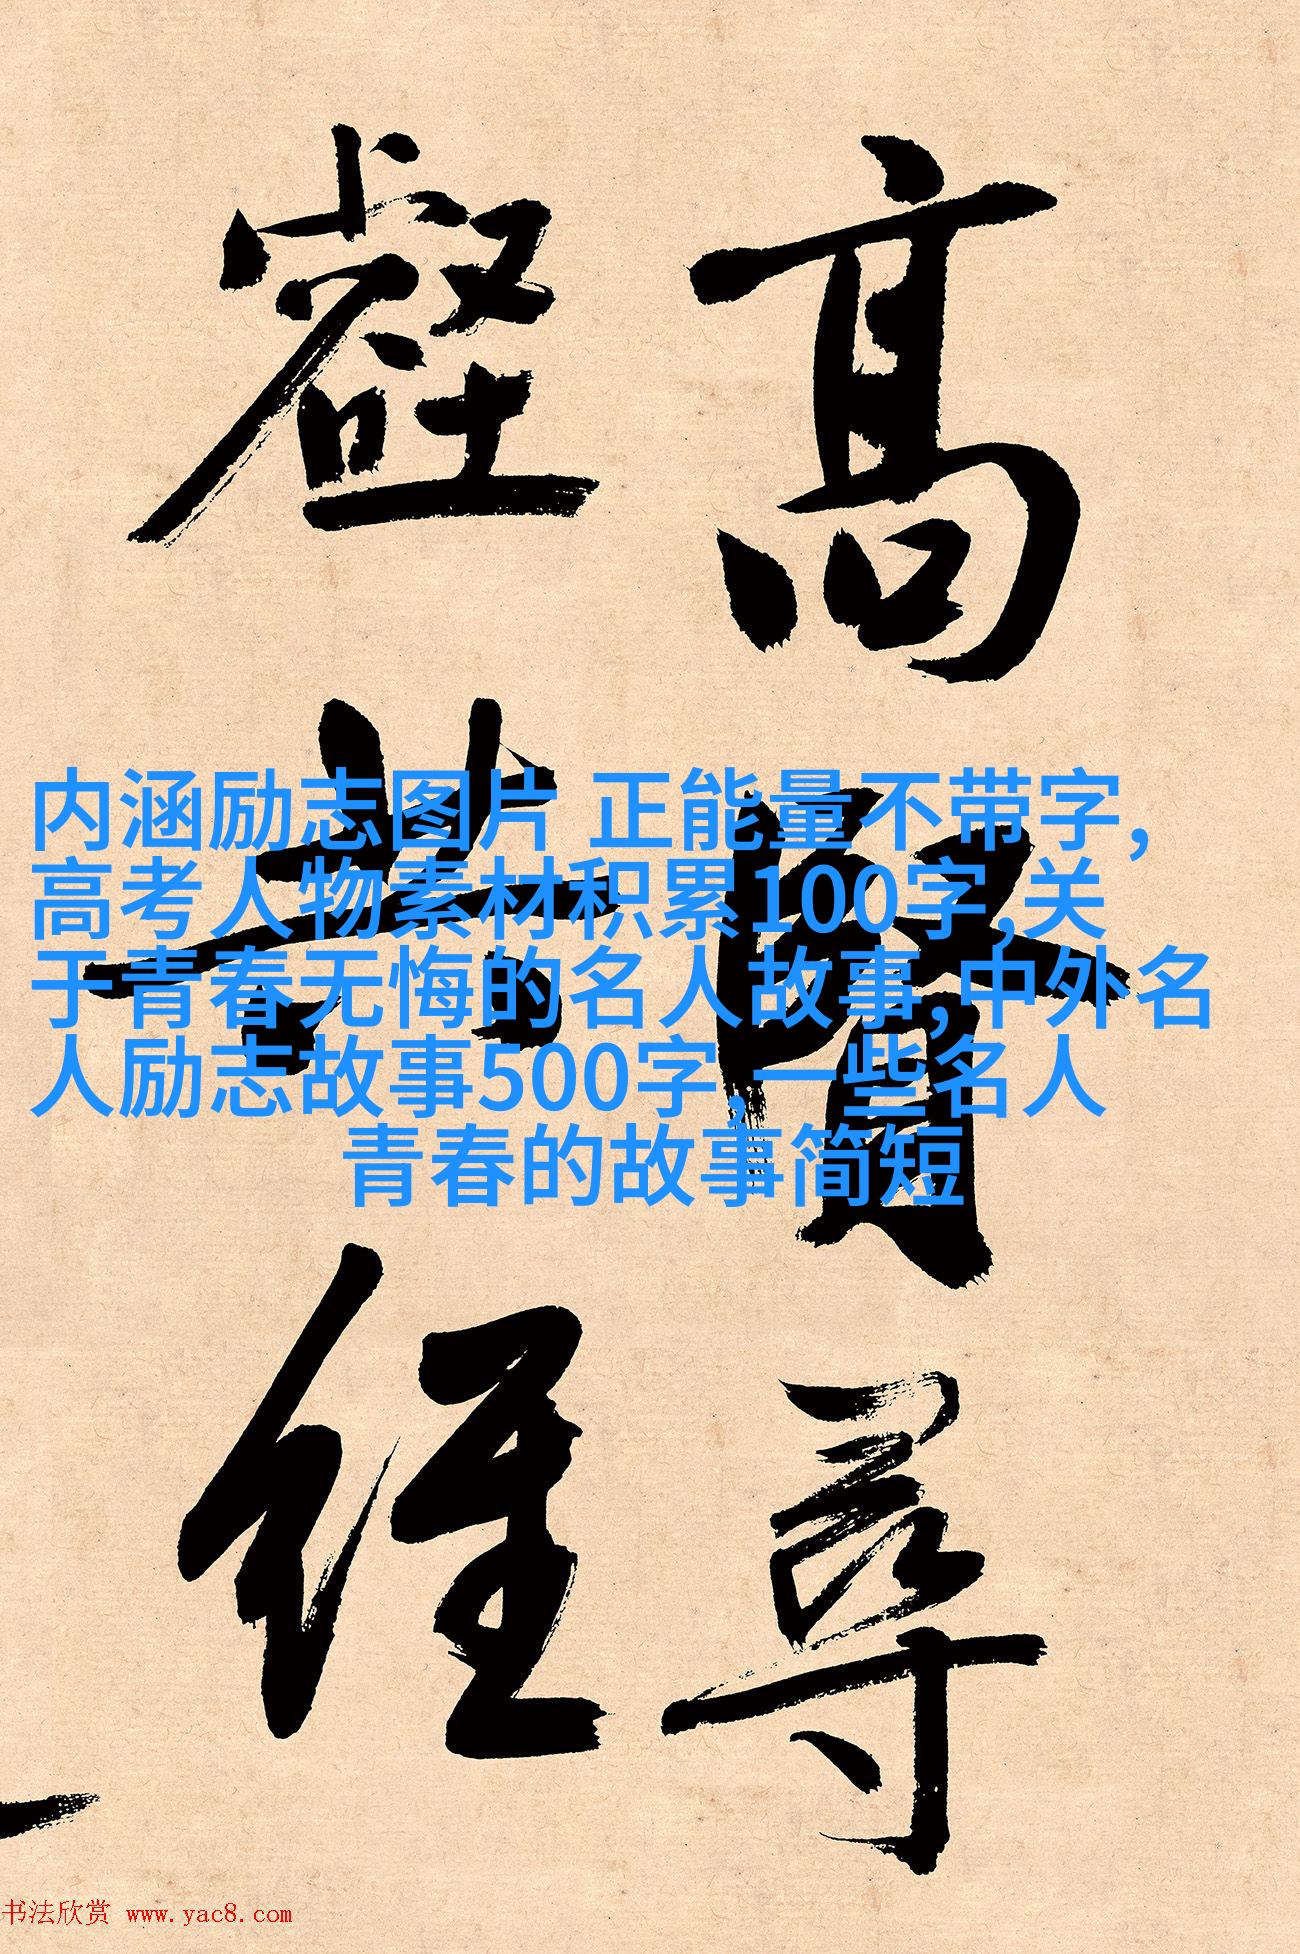 高賢尋
壑共經
内涵励志图片 正能量不带字,
高考人物素材积累100字,关
于青春无悔的名人故事,中外名
人励志故事500字,一些名人
青春的故事简短
书法欣赏 www.yac8.com